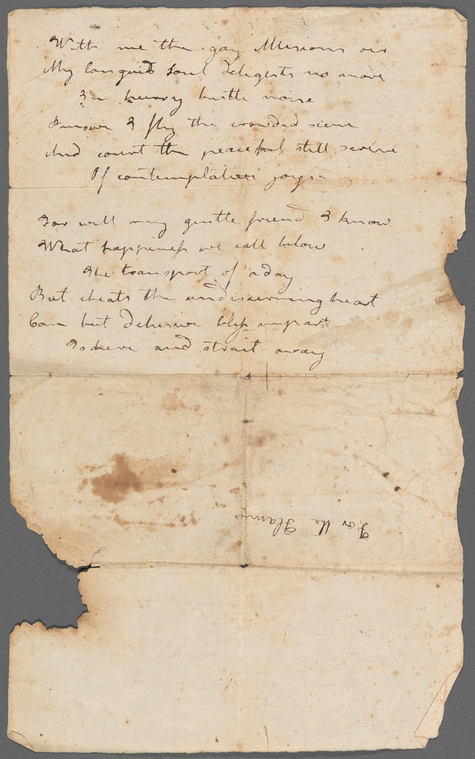 With me the gay Illusions are
My languid soul delights no more
In hurry bustle noise
I move I fly the crowded scene
And court the peaceful still serene
Of contemplative joys
Too well my gentle friend I know
What happiness we call below
The transport of a day
But cheats the undiscerning heart
Can but delusive bliss impart
Is here and strait away
For the